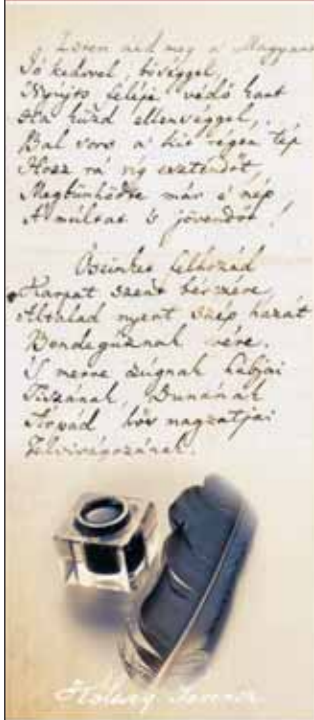 Isten áld meg a Magyart
Jó kedvvel, bőséggel,
Nyújts feléje védő kart
Ha küzd ellenséggel,
Bal sors a kit régen tép
Hozz rá víg esztendőt,
Megbűnhödte már e nép
A múltat s jövendőt!
Őseinket felhozád
Kárpát szent bérczére,
Általad nyert szép hazát
Bendegúznak vére.
'S merre zúgnak habjai
Tiszának, Dunának
Árpád hős magzatjai
Felvirágozának.
Kölcsey Ferencz